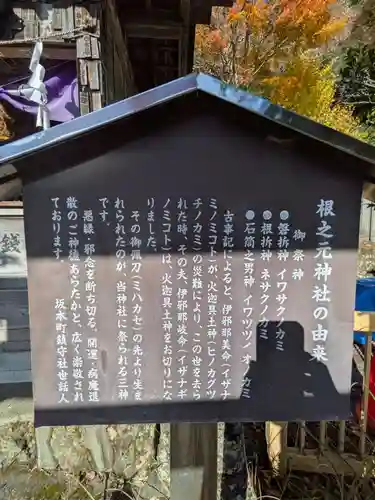 根之元神社の由来
御祭神
●磐拆神 イワサクノカミ
●根拆神 ネサクノカミ
●石筒之男神 イワツツノオノカミ
古事記によると、伊邪那美命(イザナ
ミノミコト)が、火迦具土神(ヒノカグツ
チノカミ)の災難により、この世を去ら
れた時、その夫、伊邪那岐命(イザナギ
ノミコト)は、火迦具土神をお切りにな
りました。
その御佩刀(ミハカセ)の先より生ま
れられたのが、当神社に祭られる三神
です。
悪縁・邪念を断ち切る、開運・病魔退
散のご神徳あらたかと、広く崇敬され
ております。
坂本町鎮守社世話人